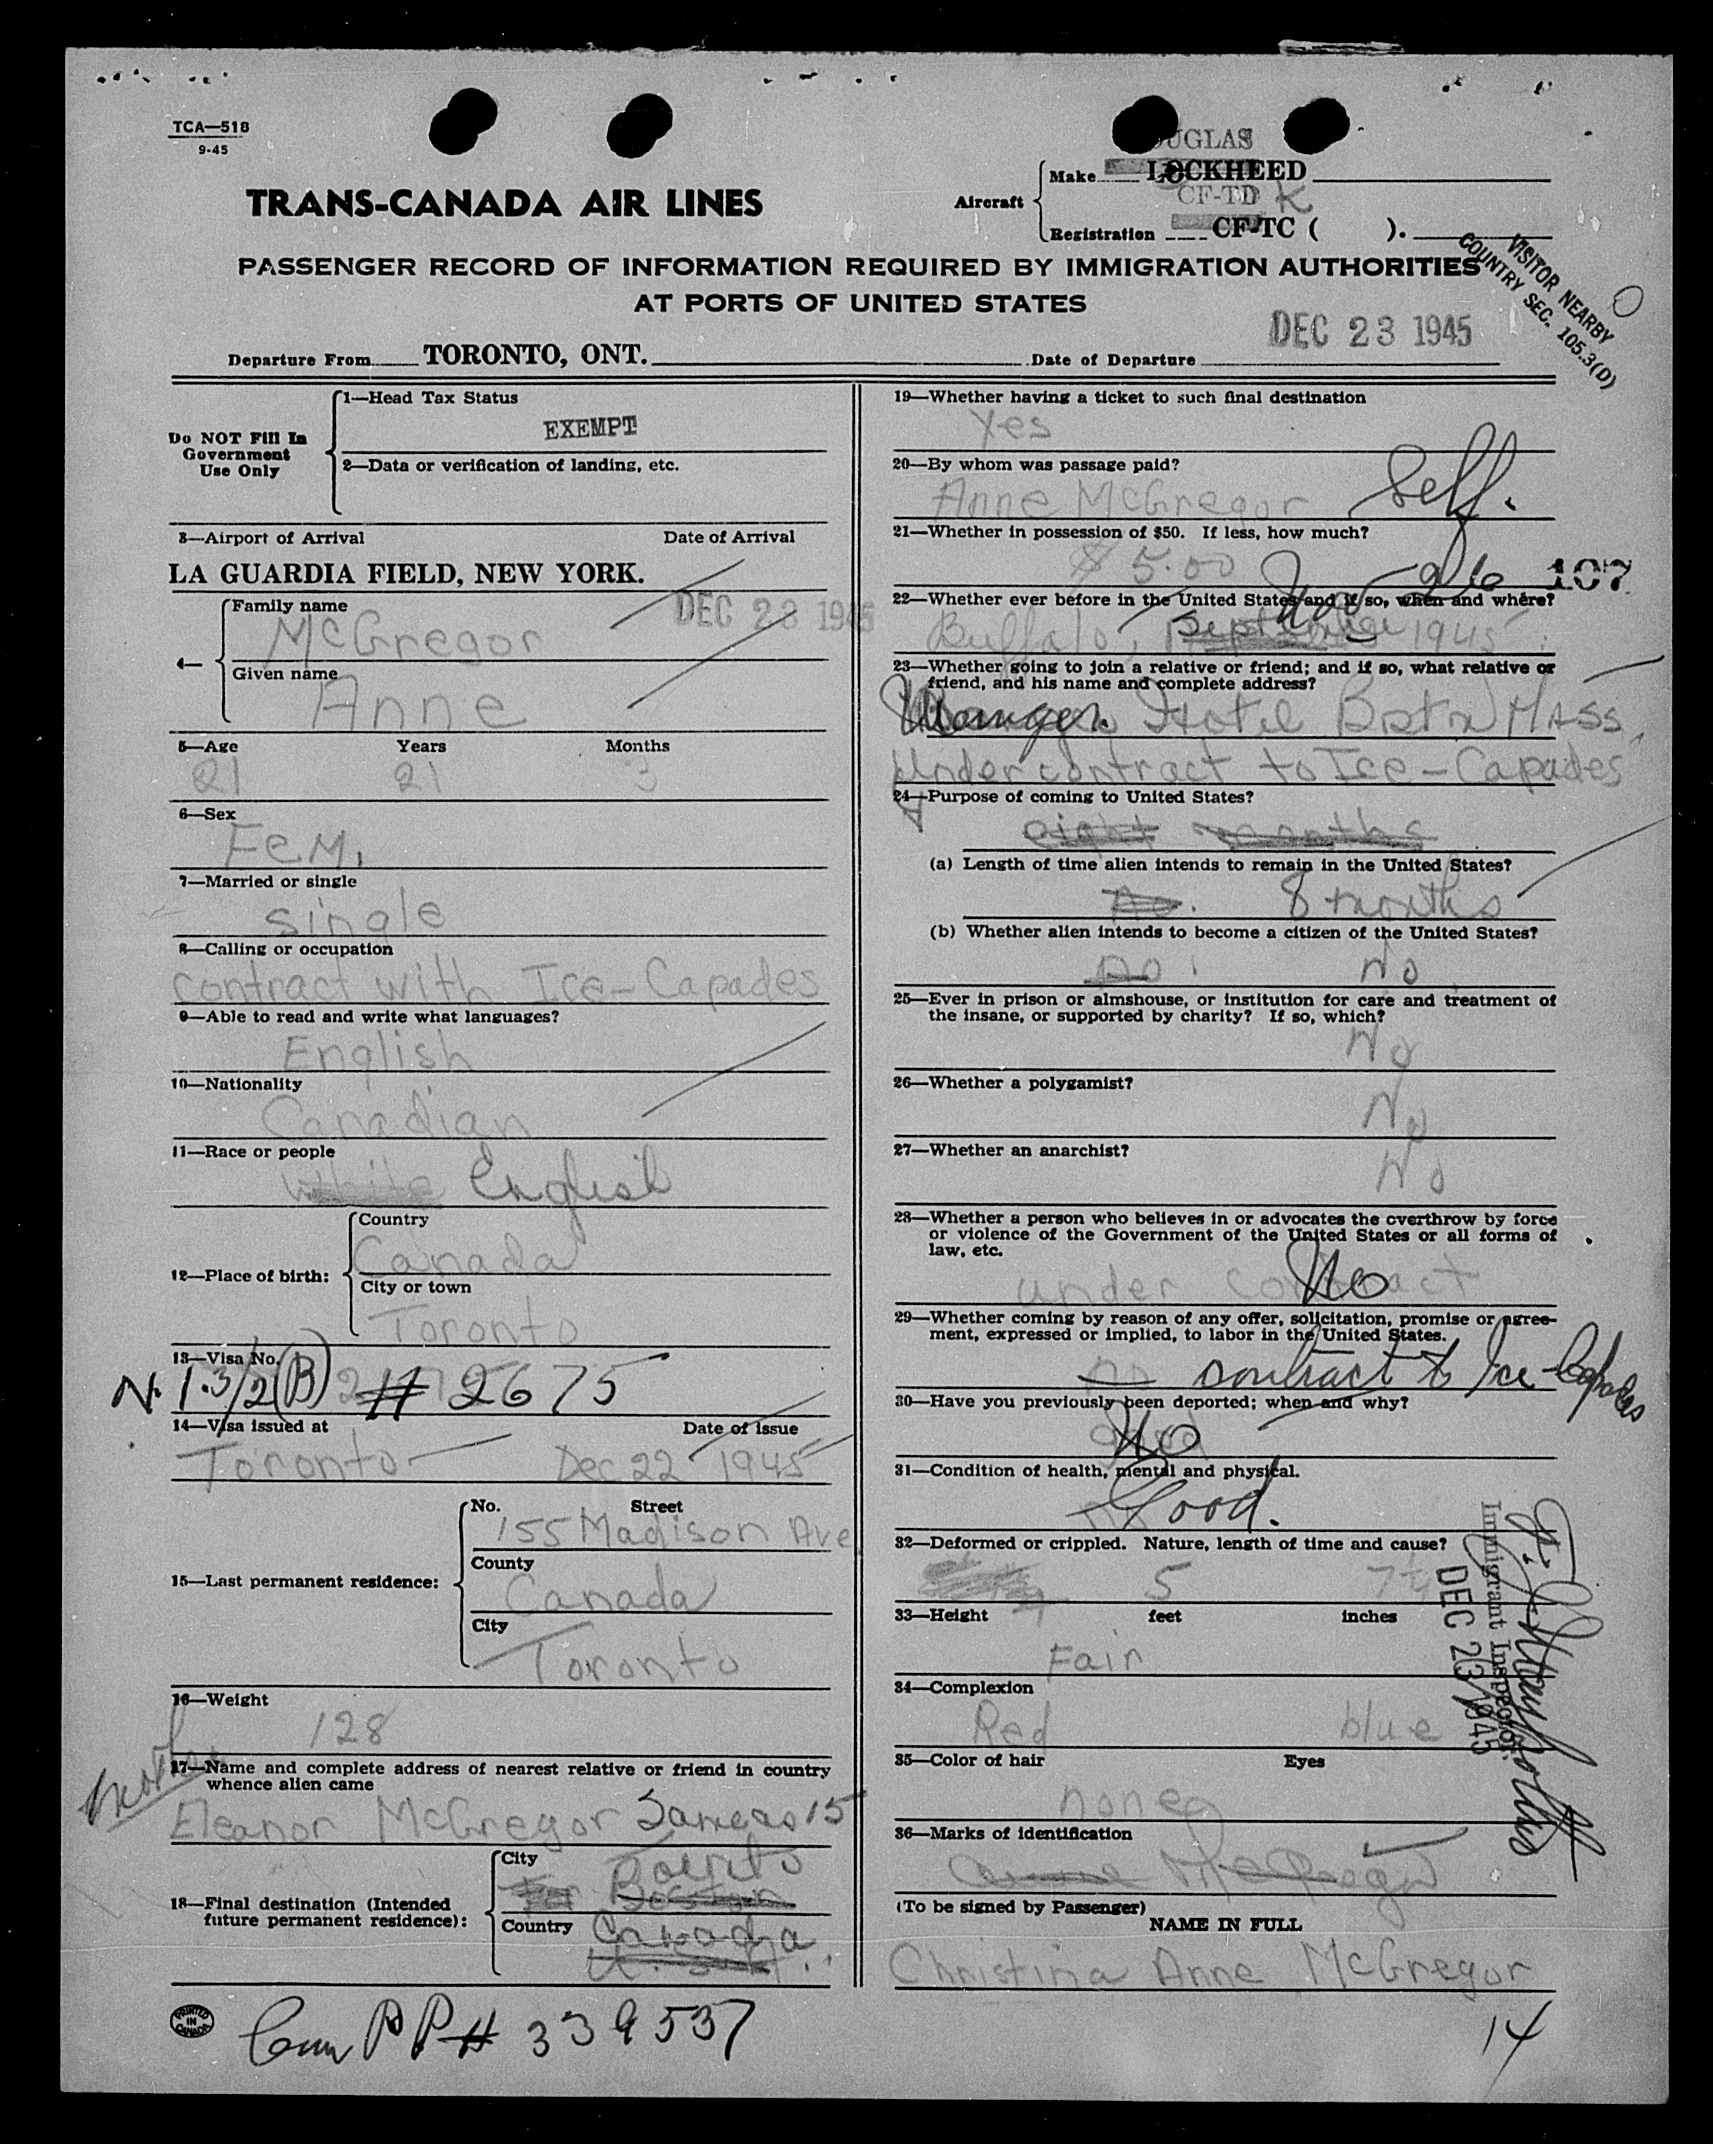 TCA—518
9-45
UGLAS
Aircraft
Make LOCKHEED
CF-TD K
Registration CF-TC ( ).
TRANS-CANADA AIR LINES
PASSENGER RECORD OF INFORMATION REQUIRED BY IMMIGRATION AUTHORITIES
AT PORTS OF UNITED STATES
VISITOR NEARBY
COUNTRY SEC. 105.3(D)
DEC 23 1945
Departure From TORONTO, ONT. Date of Departure
Do NOT Fill In
Government
Use Only
1—Head Tax Status
EXEMPT
2—Data or verification of landing, etc.
3—Airport of Arrival Date of Arrival
LA GUARDIA FIELD, NEW YORK.
DEC 23 1945
4—
Family name
McGregor
Given name
Anne
5—Age Years Months
21 21 3
6—Sex
Fem.
7—Married or single
single
8—Calling or occupation
contract with Ice-Capades
9—Able to read and write what languages?
English
10—Nationality
Canadian
11—Race or people
white English
12—Place of birth:
Country
Canada
City or town
Toronto
13—Visa No.
N. 1.3/2(B) # 2675
14—Visa issued at Date of issue
Toronto Dec 22 1945
15—Last permanent residence:
No. Street
155 Madison Ave
County
Canada
City
Toronto
16—Weight
128
mother
17—Name and complete address of nearest relative or friend in country
whence alien came
Eleanor McGregor Same as 15
18—Final destination (Intended
future permanent residence):
City
Toronto
Boston
Country Canada
U.S.A.
PRINTED
IN
CANADA
Can PP# 339537
19—Whether having a ticket to such final destination
Yes
20—By whom was passage paid?
Anne McGregor Self.
21—Whether in possession of $50. If less, how much?
$ 5.00
107
22—Whether ever before in the United States and if so, when and where?
Buffalo, September 1945
23—Whether going to join a relative or friend; and if so, what relative or
friend, and his name and complete address?
Manger Hotel Bstn Mass
Under contract to Ice-Capades
24—Purpose of coming to United States?
eight months
(a) Length of time alien intends to remain in the United States?
no. 8 months
(b) Whether alien intends to become a citizen of the United States?
no No
25—Ever in prison or almshouse, or institution for care and treatment of
the insane, or supported by charity? If so, which?
No
26—Whether a polygamist?
No
27—Whether an anarchist?
No
28—Whether a person who believes in or advocates the overthrow by force
or violence of the Government of the United States or all forms of
law, etc.
under contract No
29—Whether coming by reason of any offer, solicitation, promise or agree-
ment, expressed or implied, to labor in the United States.
no contract to Ice-Capades
30—Have you previously been deported; when and why?
good No
31—Condition of health, mental and physical.
Good.
32—Deformed or crippled. Nature, length of time and cause?
5 7¼
33—Height feet inches
Fair
34—Complexion
Red blue
35—Color of hair Eyes
none
36—Marks of identification
Anne McGregor
(To be signed by Passenger)
NAME IN FULL
Christina Anne McGregor
Immigrant Inspector.
DEC 23 1945
14